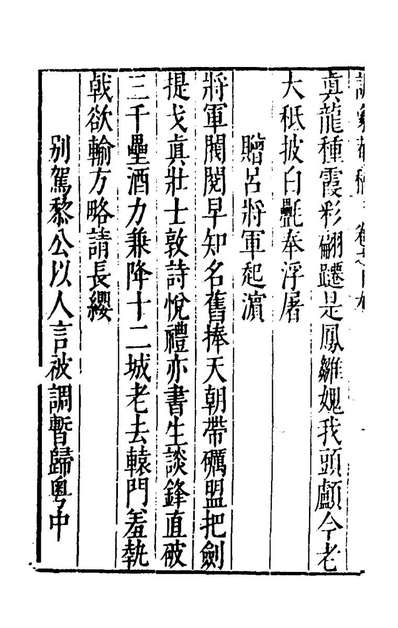 真龍種霞彩翩躚是鳳雛媿我頭顱今老
大秪披白㲲奉浮屠
贈呂將軍起濵
將軍閥閱早知名舊捧天朝帶礪盟把劍
提戈真壯士敦詩悅禮亦書生談鋒直破
三千壘酒力兼降十二城老去轅門羞執
戟欲輸方略請長纓
別駕黎公以人言被調暫歸粵中